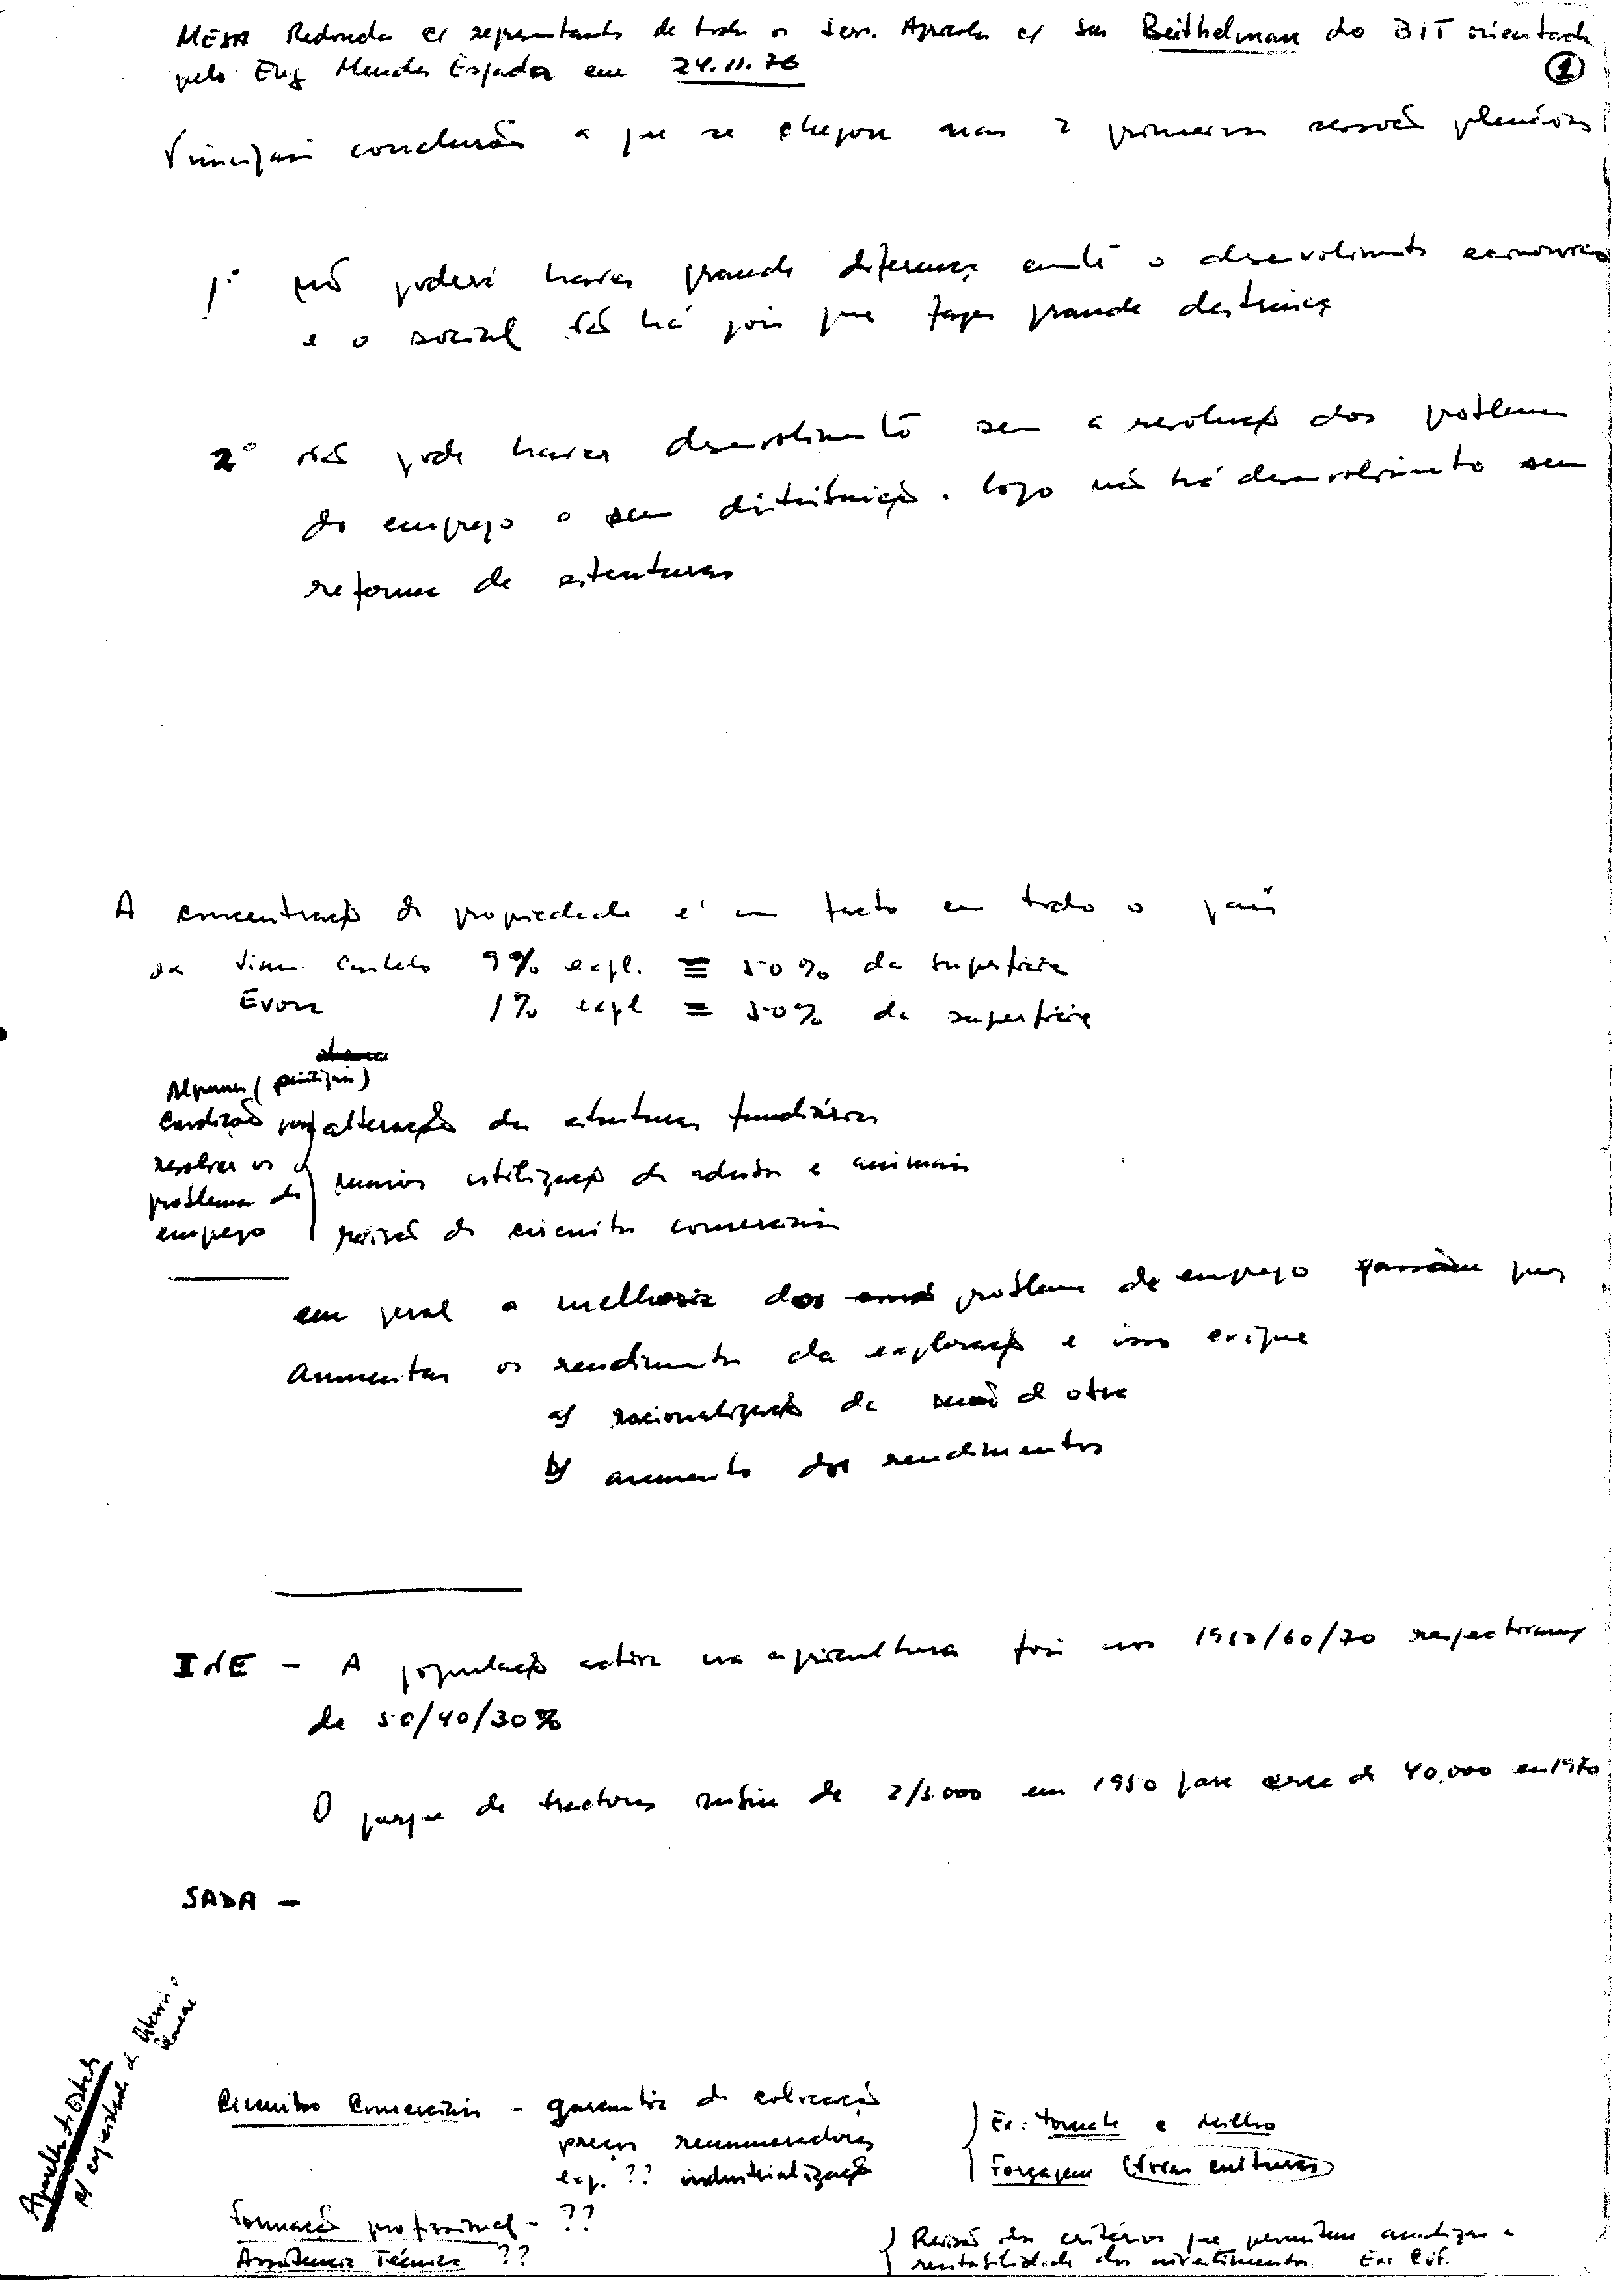 MESA Redonda c/ representantes de todos os Serv. Agricolas c/ Beithelman do BIT orientada
pelo Eng Mendes Espada em 24.11.76
1
Principais conclusões a que se chegou nas 2 primeiras sessões plenárias
1º não poderá haver grande diferença entre o desenvolvimento económico
e o social não há pois que fazer grande destrinça
2º não pode haver desenvolvimento sem a resolução dos problemas
do emprego e sem distribuição. logo não há desenvolvimento sem
reforma de estruturas
A concentração da propriedade é um facto em todo o país
Viana Castelo 9% expl. ≡ 50% da superfície
Évora 1% expl = 50% da superfície
Algumas (principais)
Condições para
resolver os
problemas do
emprego
alteração das estruturas fundiárias
utilização de adubos e animais
revisão de circuitos comerciais
em geral a melhoria dos problemas de emprego por
aumentar os rendimentos da exploração e isso exige
a) racionalização da mão d obra
b) aumento dos rendimentos
INE - A população activa na agricultura foi nos 1950/60/70 respectivamente
de 50/40/30%
O parque de tractores subiu de 2/3.000 em 1950 para cerca de 40.000 em 1970
SADA -
Circuitos Comerciais - garantia de colocação
preços remuneradores
exp. ?? industrialização
Ex: Tomate e Milho
Forçagem (Novas culturas)
Formação profissional - ??
Assistencia Técnica ??
Revisão dos critérios que permitem analizar a
rentabilidade dos investimentos. Ex: